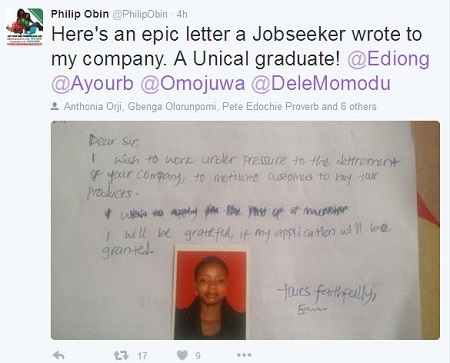 Philip Obin @PhilipObin · 4h
Here's an epic letter a Jobseeker wrote to
my company. A Unical graduate! @Ediong
@Ayourb @Omojuwa @DeleMomodu
Anthonia Orji, Gbenga Olorunpomi, Pete Edochie Proverb and 6 others
Dear Sir,
I wish to work under pressure to the detriement
of your company, to motivate customers to buy your
Products.
I will be grateful, if my application will be
granted.
Yours faithfully,
17
9